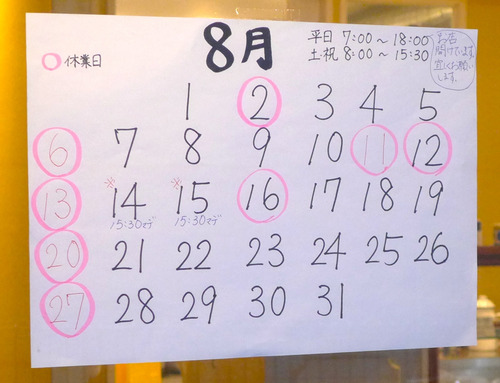 8月
○休業日
平日 7:00~18:00
土・祝 8:00~15:30
お店
開けています。
宜しくお願い
します。
1 2 3 4 5
6 7 8 9 10 11 12
13 ※14 ※15 16 17 18 19
15:30マデ 15:30マデ
20 21 22 23 24 25 26
27 28 29 30 31